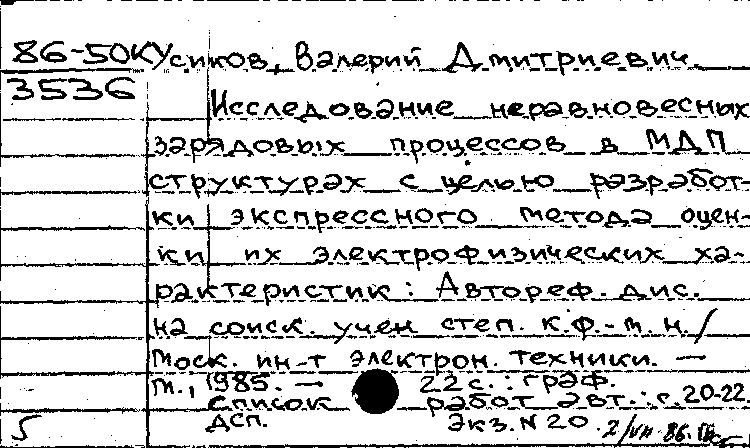 86-50К Усиков, Валерий Дмитриевич.
3536
Исследование неравновесных
зарядовых процессов в МДП
структурах с целью разработ-
ки экспрессного метода оцен-
ки их электрофизических ха-
рактеристик: Автореф. дис.
на соиск. учен степ. к.ф.-м.н./
Моск. ин-т электрон. техники. —
М., 1985. — 22 с.: граф.
Список работ авт.: с. 20-22.
ДСП. Экз. N 20. 2/VII-86.
5